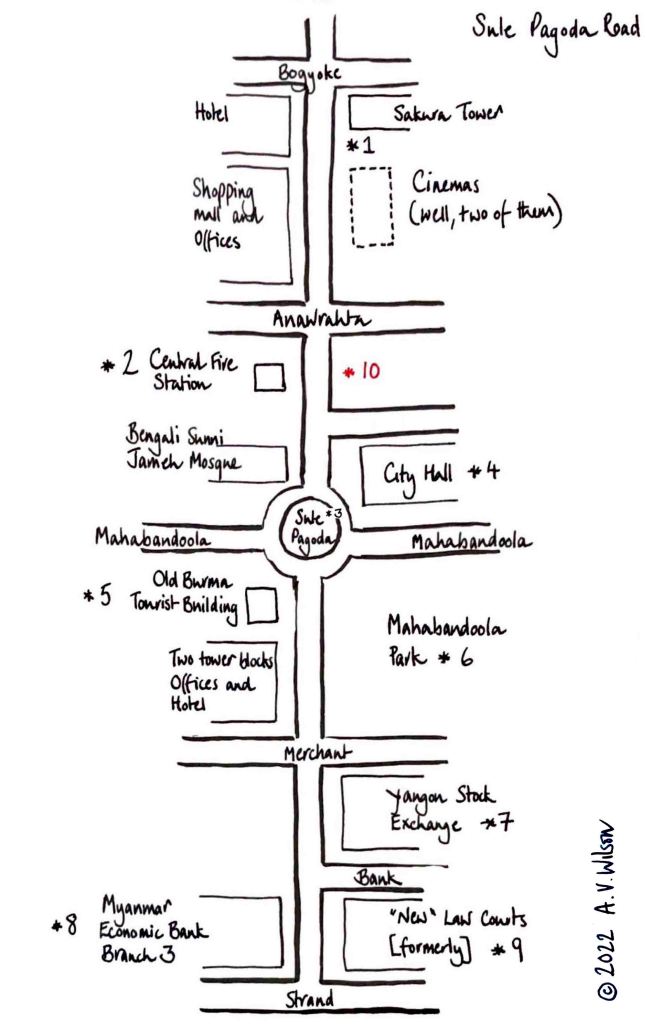 Sule Pagoda Road
Bogyoke
Hotel
Sakura Tower
*1
Shopping
mall and
Offices
Cinemas
(well, two of them)
Anawrahta
*2 Central Fire
Station
*10
Bengali Sunni
Jameh Mosque
City Hall *4
Sule *3
Pagoda
Mahabandoola
Mahabandoola
*5 Old Burma
Tourist Building
Mahabandoola
Park *6
Two tower blocks
Offices and
Hotel
Merchant
Yangon Stock
Exchange *7
Bank
*8 Myanmar
Economic Bank
Branch 3
"New" Law Courts
[formerly] *9
Strand
© 2022 A.V. Wilson